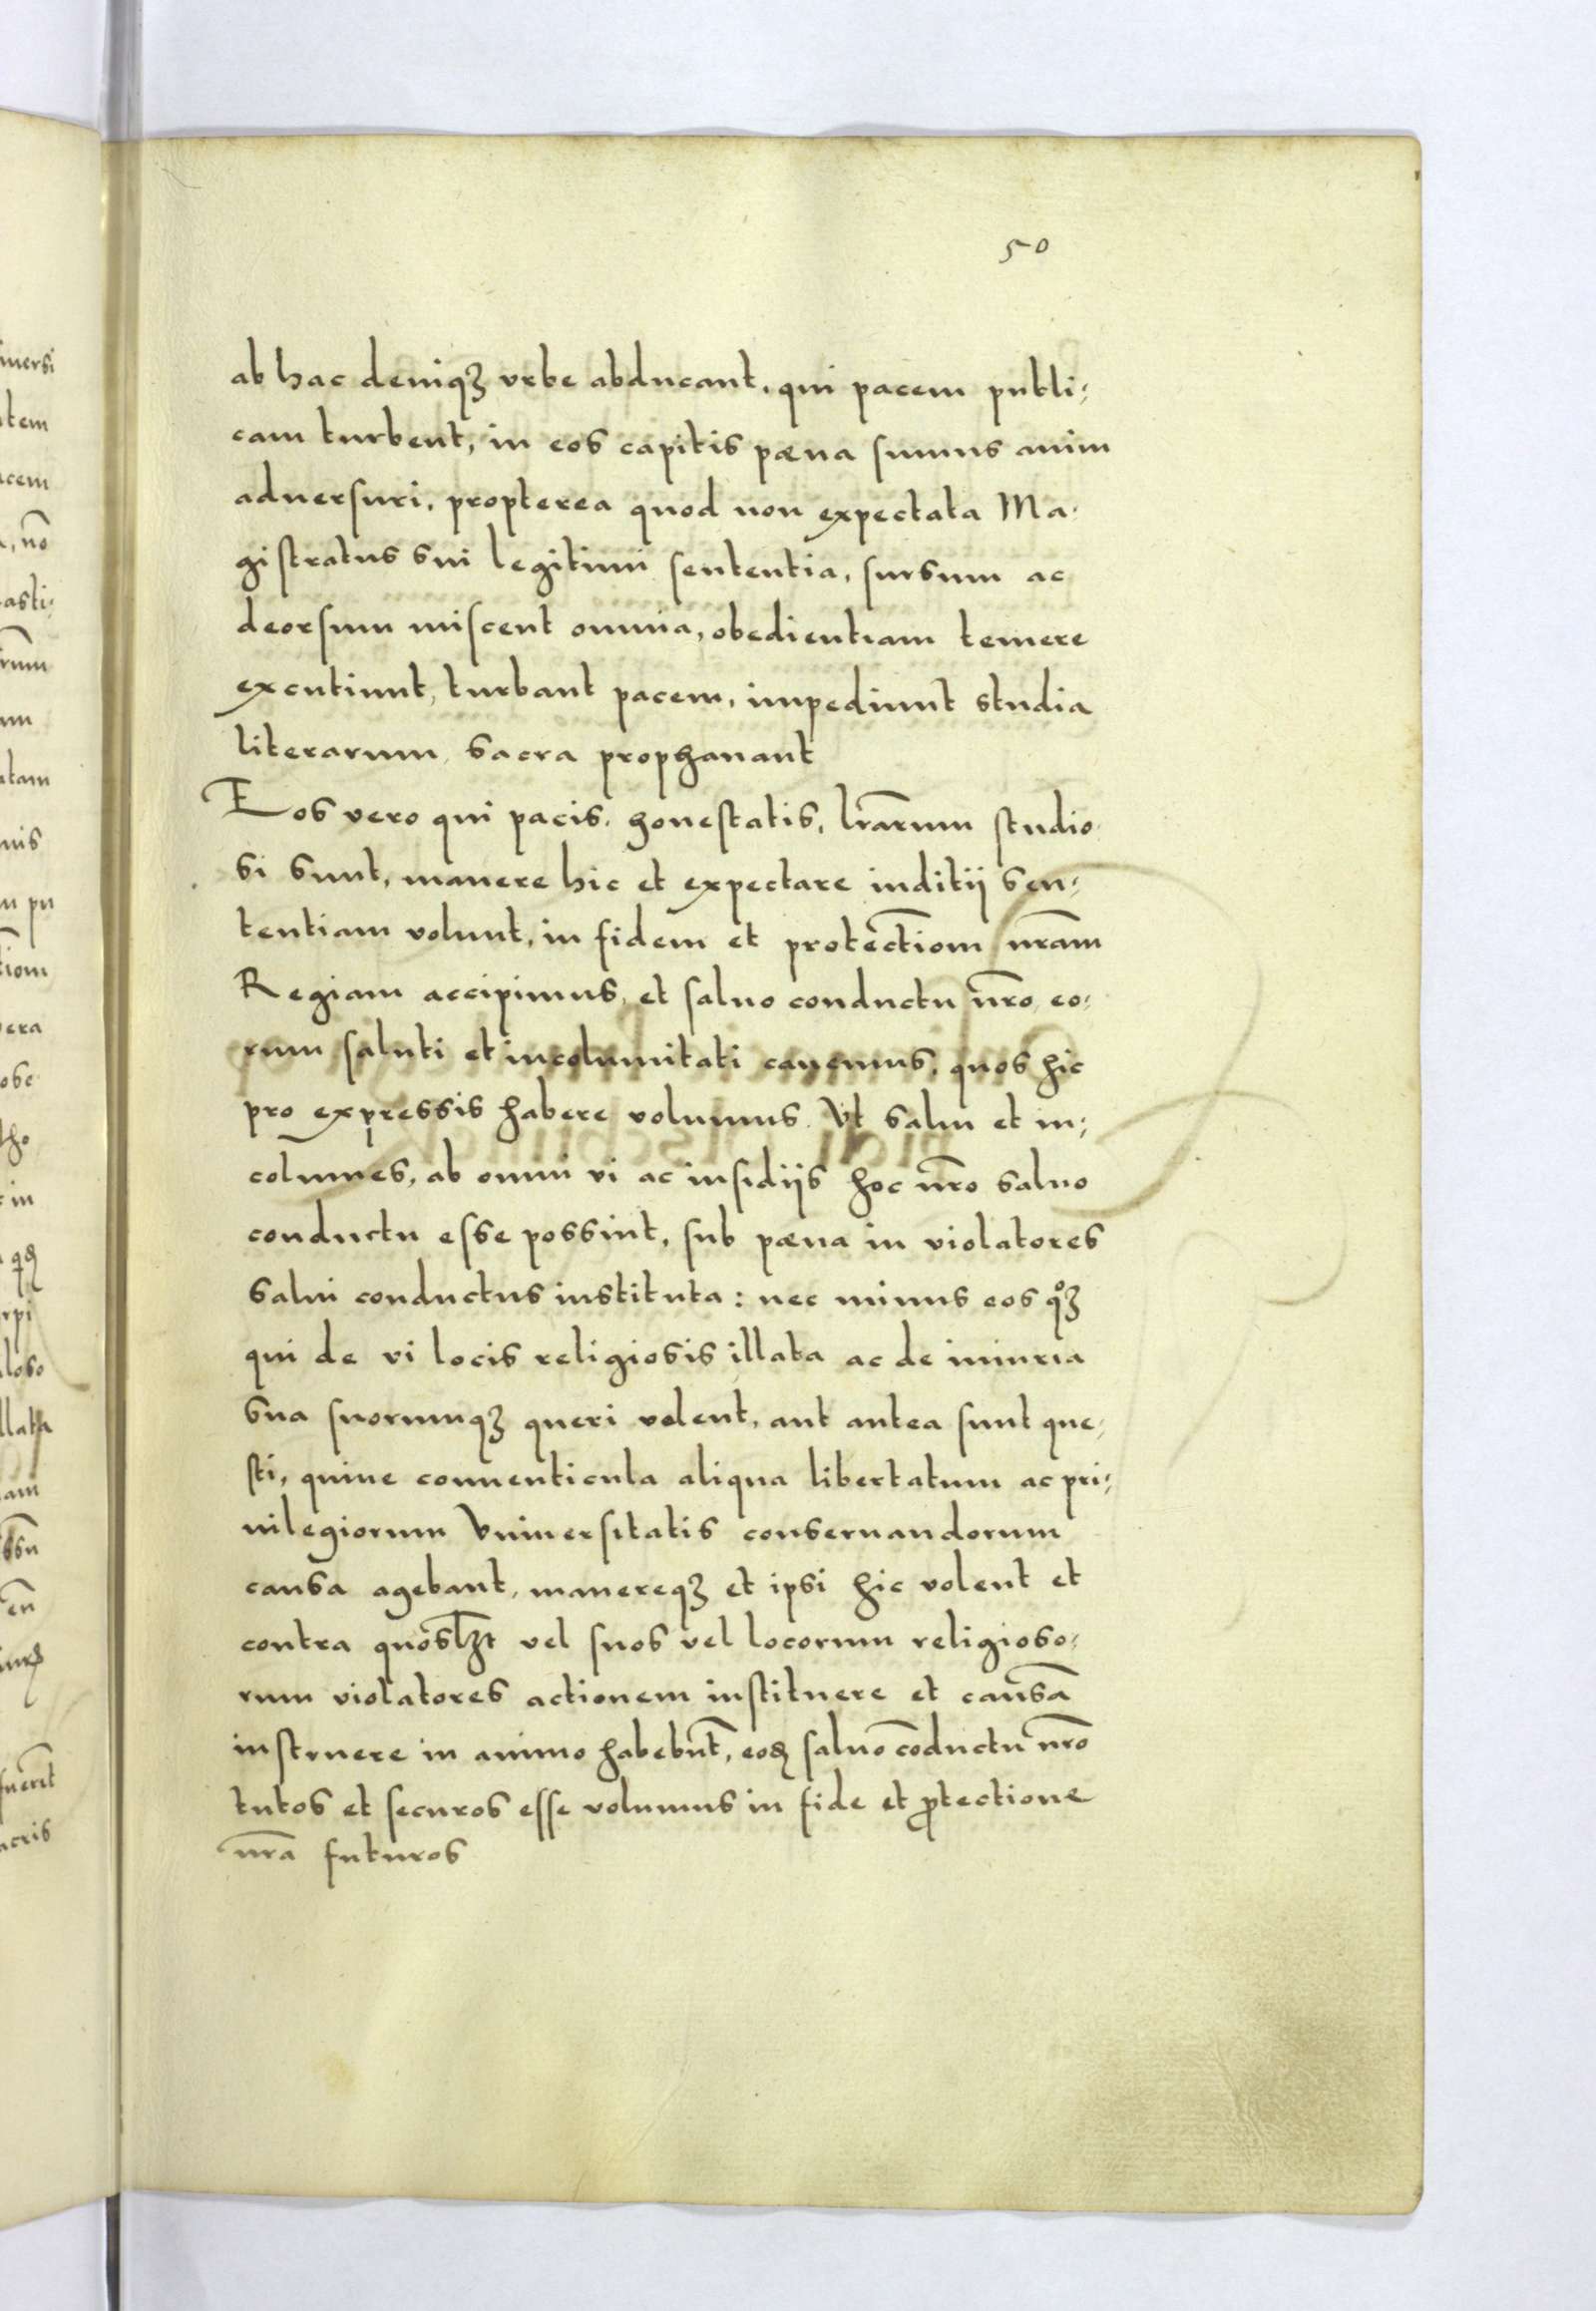 50
ab hac deniqꝫ vrbe abducant, qui pacem publi⸗
cam turbent, in eos capitis pæna sumus anim
aduersuri, propterea quod non expectata Ma⸗
gistratus sui legitimi sententia, sursum ac
deorsum miscent omnia, obedientiam temere
excutiunt, turbant pacem, impediunt studia
literarum, sacra prophanant
Eos vero qui pacis, honestatis, lr̄arum studio
si sunt, manere hic et expectare inditij sen⸗
tentiam volunt, in fidem et protectiom̄ nr̄am
Regiam accipimus, et saluo conductu nr̄o eo⸗
rum saluti et incolumitati cauemus, quos hic
pro expressis habere volumus. Vt salui et in⸗
columes, ab omni vi ac insidijs hoc nr̄o saluo
conductu esse possint, sub pæna in violatores
salui conductus instituta: nec minus eos qͦꝫ
qui de vi locis religiosis illata ac de iniuria
sua suorumqꝫ queri volent, aut antea sunt que⸗
sti, quiue conuenticula aliqua libertatum ac pri⸗
uilegiorum Vniuersitatis conseruandorum
causa agebant, manereqꝫ et ipsi hic volent et
contra quoslꝫt vel suos vel locorum religioso⸗
rum violatores actionem instituere et causā
instruere in animo habebūt, eosꝫ saluo cōductu nr̄o
tutos et securos esse volumus in fide et ꝓtectione
nr̄a futuros